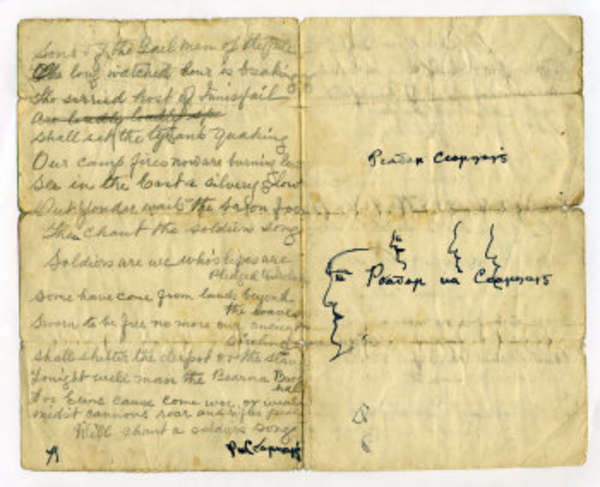 Sons of the Gael men of the Pale
The long watched hour is breaking
The serried host of Innisfail
Are
shall set the tyrant Quaking
Our camp fires now are burning low
See in the East a silvery glow
Out Yonder waits the Saxon foe
Then chant the soldiers song
Soldiers are we who's lifes are
Pledged to
Some have come from lands beyond
the waves
Sworn to be free no more our ancient
shall shelter the despot or the slave
Tonight well man the Bearna
For Eires cause come woe or weal
midst cannons roar and rifles peal
Will chant a soldiers song
Peadar
Peadar